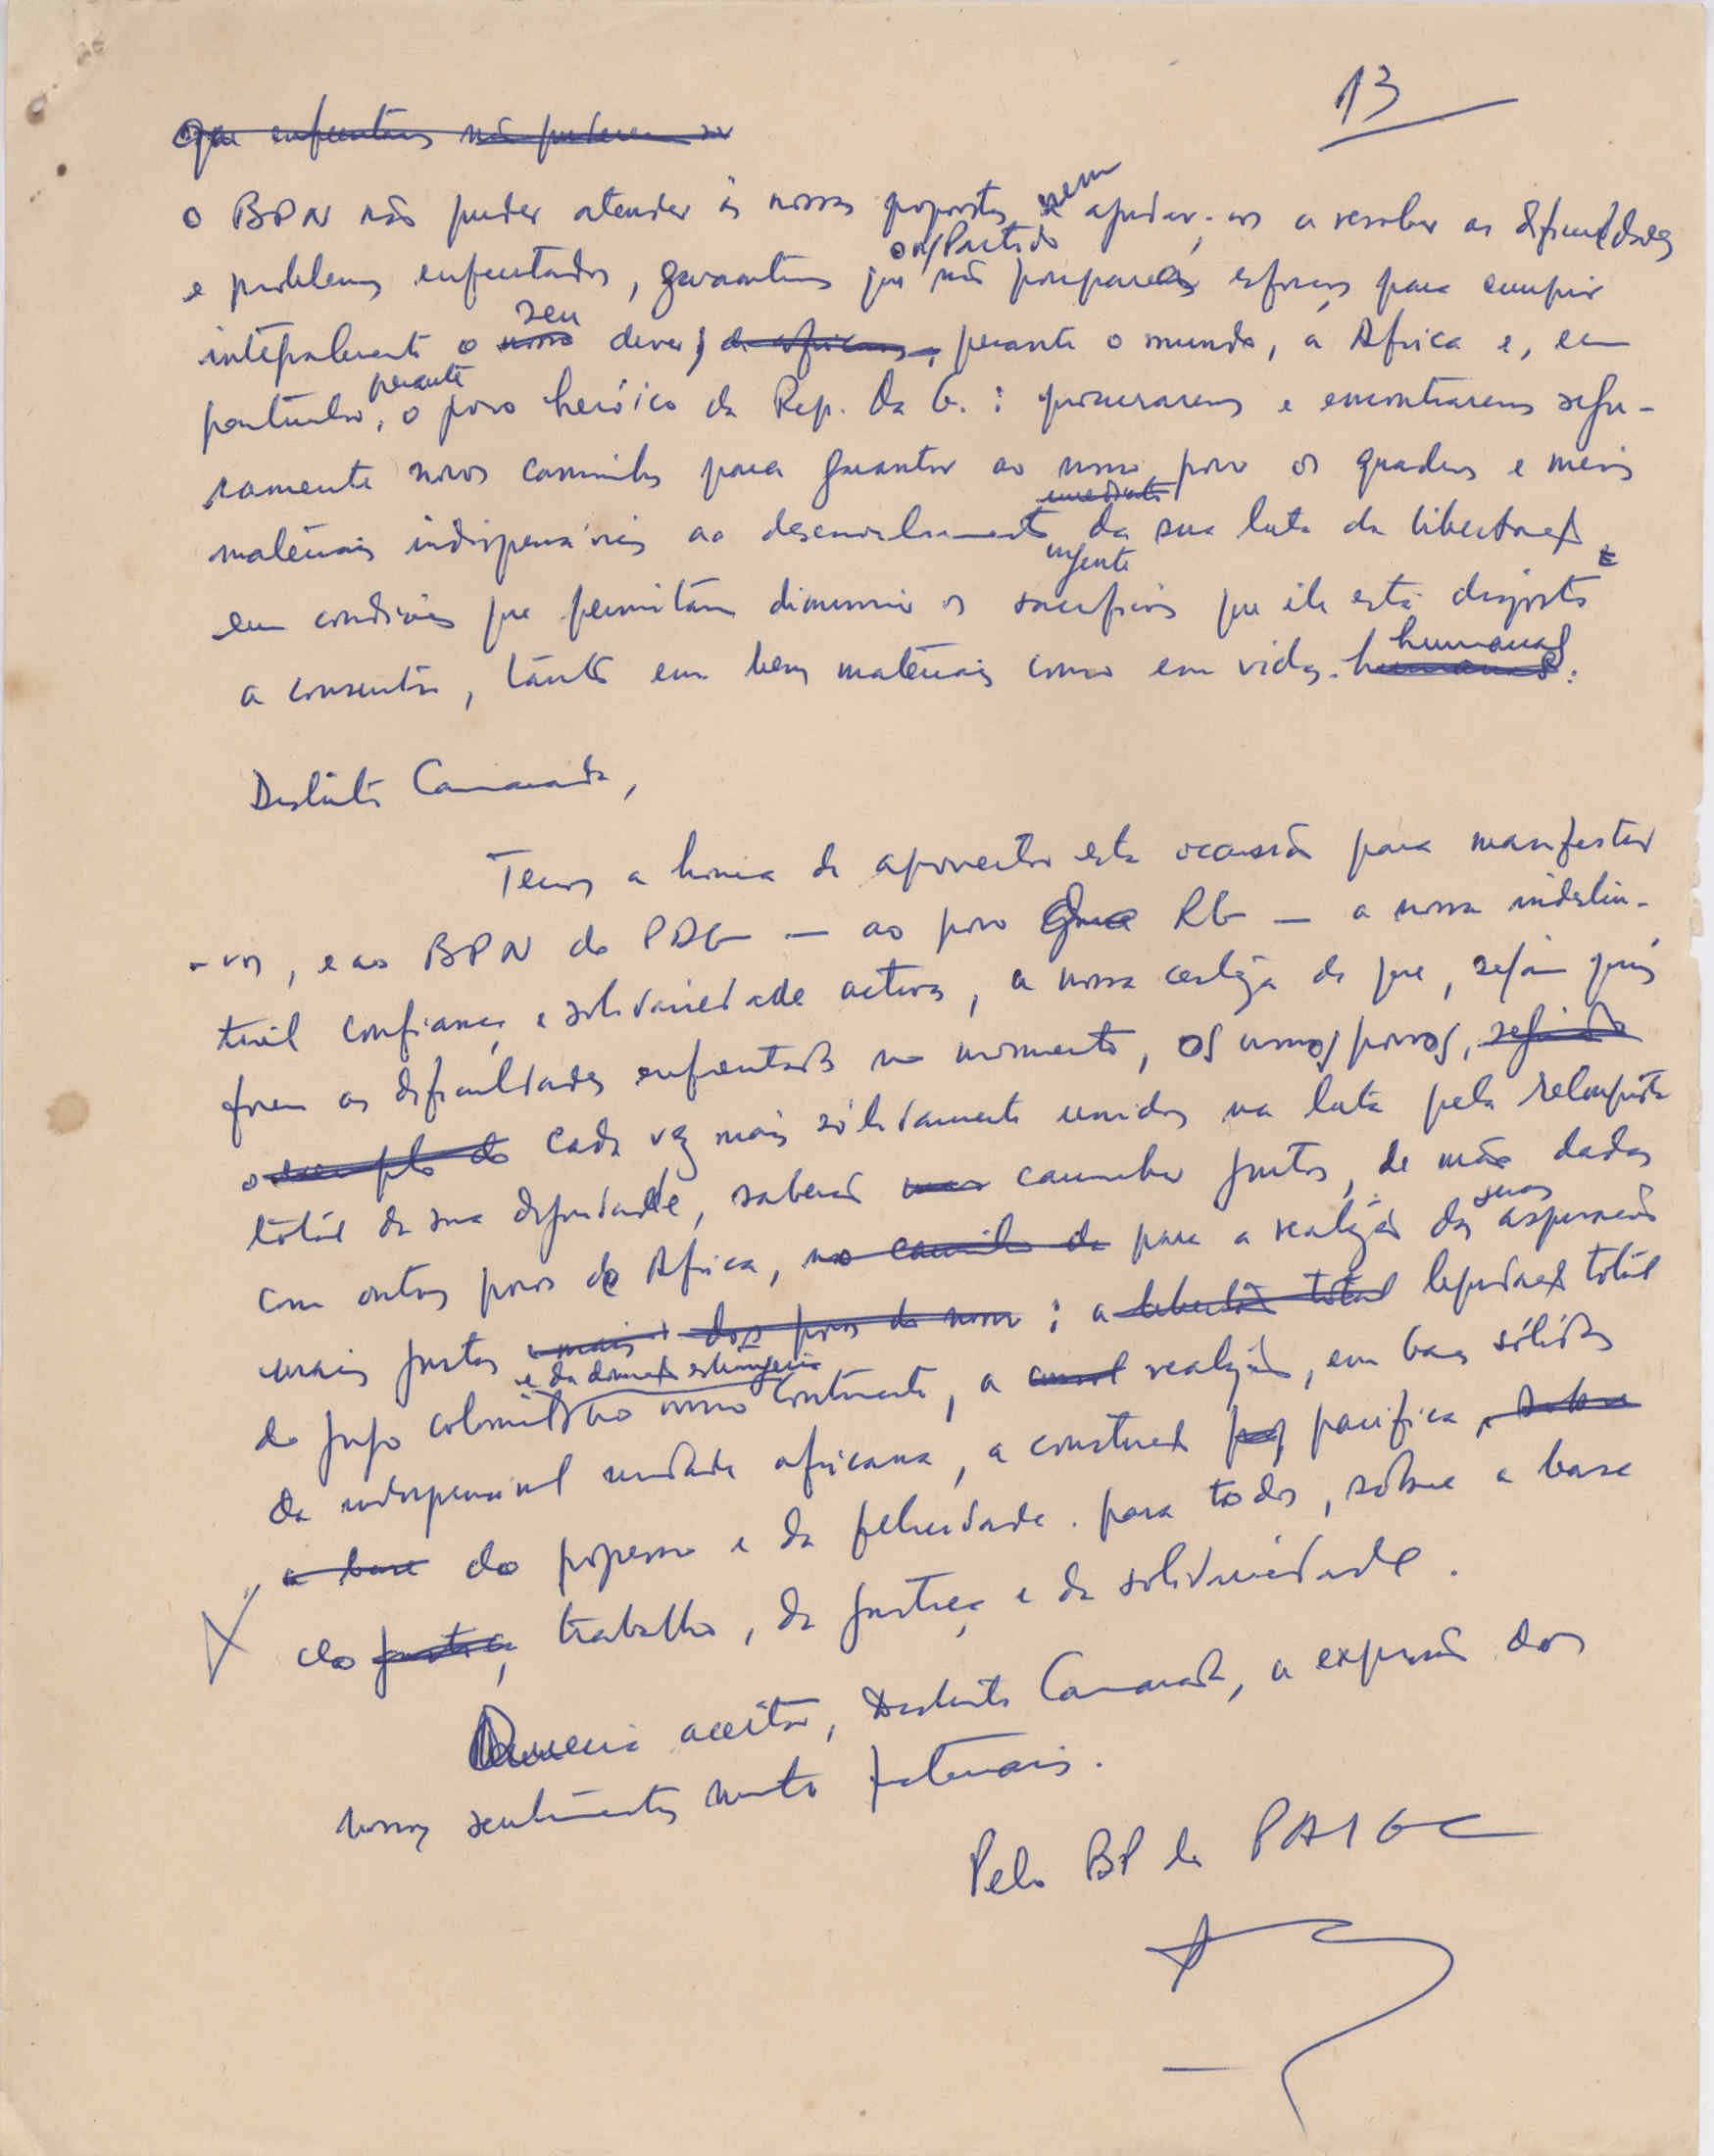 13
que enfrentamos não puderem ser
o BPN não puder atender às nossas propostas nem ajudar-nos a resolver as dificuldades
o n/Partido
e problemas enfrentados, garantimos que não poupará esforços para cumprir
seu
integralmente o nosso dever, de africanos, perante o mundo, a Africa e, em
perante
particular, o povo heróico da Rep. da G.: procuraremos e encontraremos segu-
ramente novos caminhos para garantir ao nosso povo os quadros e meios
imediato
materiais indispensáveis ao desenvolvimento da sua luta de libertação e
urgente
em condições que permitam diminuir os sacrifícios que ele está disposto
humanas
a consentir, tanto em bens materiais como em vidas humanas.
Distinto Camarada,
Temos a honra de aproveitar esta ocasião para manifestar
-vos, e ao BPN do PDG — ao povo da RG — a nossa indestru-
tível confiança e solidariedade activa, a nossa certeza de que, sejam quais
forem as dificuldades enfrentadas no momento, os nossos povos,
o exemplo do cada vez mais sòlidamente unidos na luta pela reconquista
total da sua dignidade, saberão caminhar juntos, de mãos dadas
suas
com outros povos de Africa, no caminho da para a realização das aspirações
mais justas e mais dos povos do nosso: a libertação total liquidação total
e da dominação estrangeira
do jugo colonial no nosso continente, a realização, em bases sólidas
da indispensável unidade africana, a construção pacífica, sobre
a base do progresso e da felicidade para todos, sobre a base
do justiça, trabalho, da justiça e da solidariedade.
Queira aceitar, Distinto Camarada, a expressão dos
nossos sentimentos muito fraternais.
Pelo BP do PAIGC